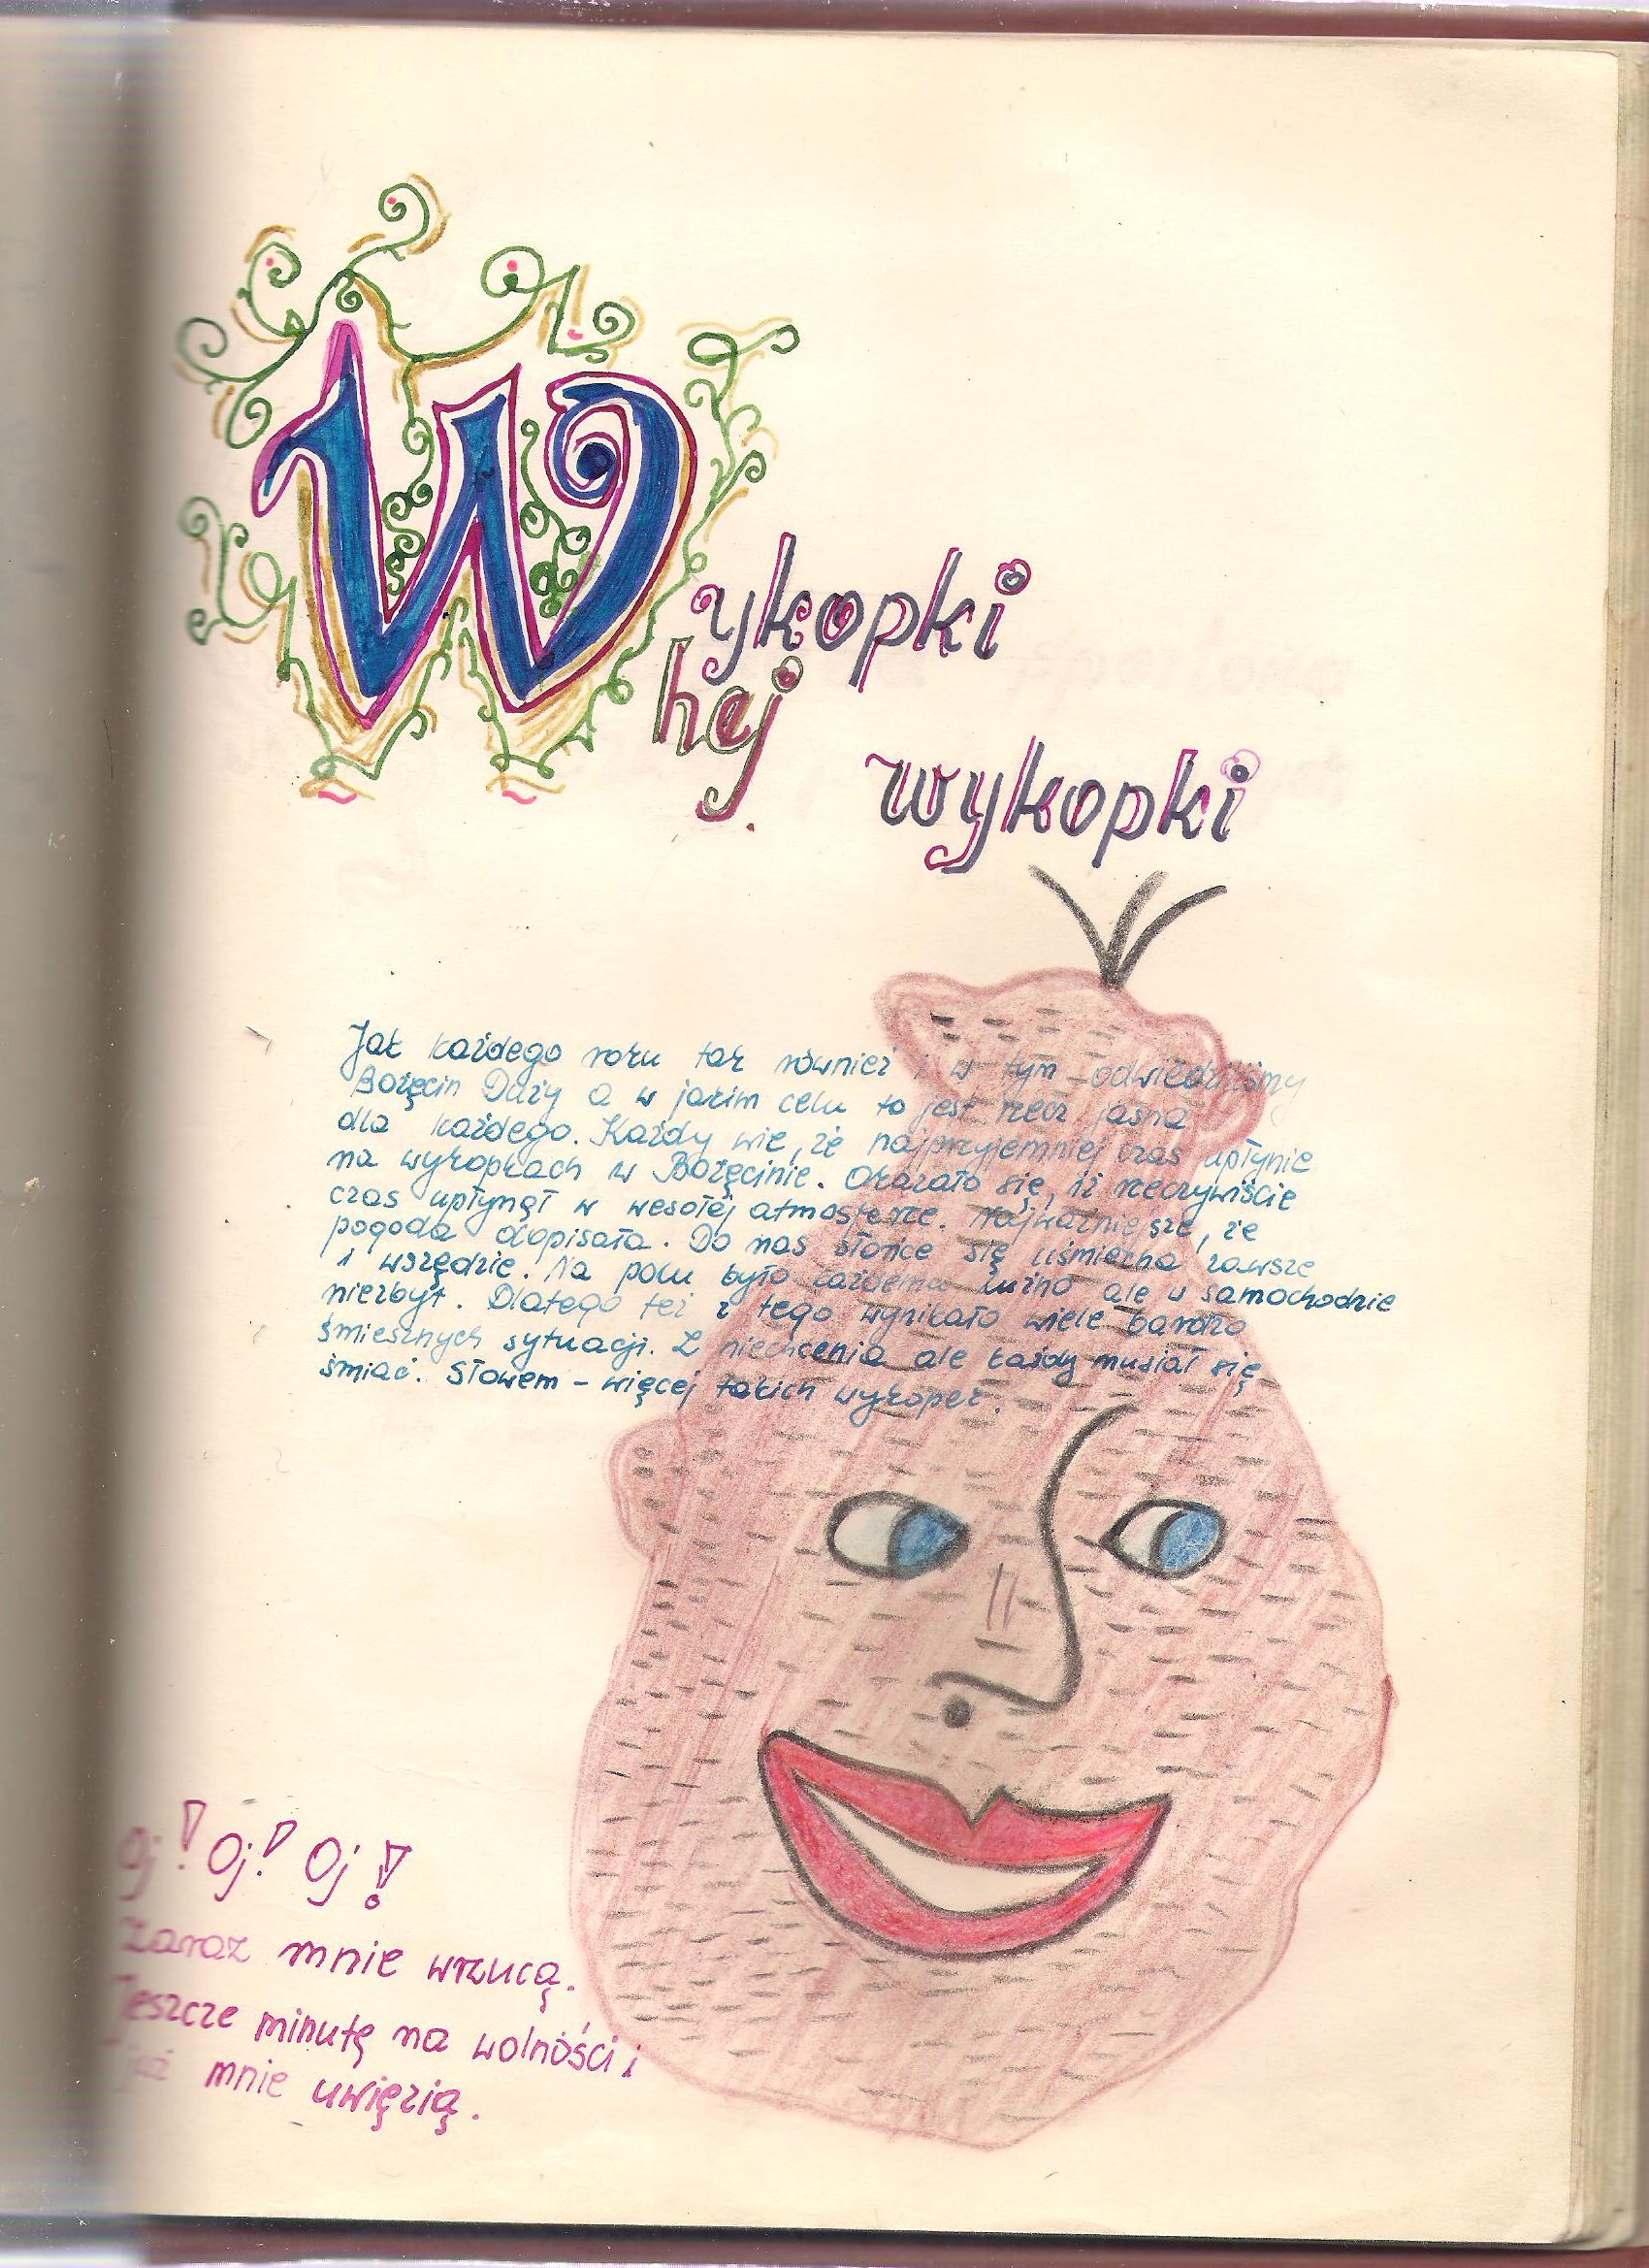 Wykopki
hej
wykopki
Jak każdego roku tak również i w tym odwiedziliśmy
Bożęcin Duży a w jakim celu to jest rzecz jasna
dla każdego. Każdy wie, że najprzyjemniej czas upłynie
na wykopkach w Bożęcinie. Okazało się, iż rzeczywiście
czas upłynął w wesołej atmosferze. Najważniejsze, że
pogoda dopisała. Do nas słońce się uśmiecha zawsze
i wszędzie. Na polu było każdemu luźno ale w samochodzie
niezbyt. Dlatego też z tego wynikało wiele bardzo
śmiesznych sytuacji. Z niechcenia ale każdy musiał się
śmiać. Słowem - więcej takich wykopek.
Oj! Oj! Oj!
Zaraz mnie wrzucą.
Jeszcze minutę na wolności i
już mnie uwięzią.